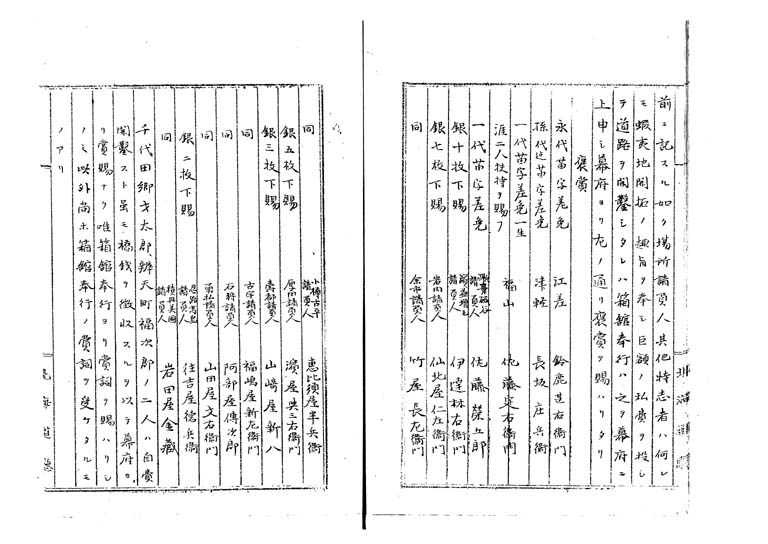 前ニ記スル如ク場所請負人其他特志者ハ何レ
モ蝦夷地開拓ノ趣旨ヲ奉シ巨額ノ私費ヲ投シ
テ道路ヲ開鑿シタレハ箱館奉行ハ之ヲ幕府ニ
上申シ幕府ヨリ左ノ通リ褒賞ヲ賜ハリタリ
褒賞
永代苗字差免 江差 鈴鹿甚右衛門
孫代迄苗字差免 津軽 長坂庄兵衛
一代苗字差免一生
涯二人扶持ヲ賜フ 福山 佐藤 右衛門
一代苗字差免 請負人 佐藤栄五郎
銀十枚下賜 請負人 伊達林右衛門
銀七枚下賜 岩内請負人 仙北屋仁左衛門
同 余市請負人 竹屋長左衛門
同 小樽古平請負人 恵比須屋半兵衛
銀五枚下賜 厚田請負人 濱屋與三右衛門
銀三枚下賜 壽都請負人 山崎屋新八
同 古宇請負人 福嶋屋新左衛門
同 石狩請負人 阿部屋傳次郎
同 請負人 山田屋文右衛門
銀二枚下賜 請負人 住吉屋徳兵衛
同 積丹美國請負人 岩田屋金藏
千代田郷才太郎、辨天町福次郎ノ二人ハ自費
開鑿スト虽モ橋銭ヲ徴収スルヲ以テ幕府ヨ
リ賞賜ナク唯箱館奉行ヨリ賞詞ヲ賜ハリシ
ノミ以外尚ホ箱館奉行ノ賞詞ヲ受ケタルモ
ノアリ
北海道廳